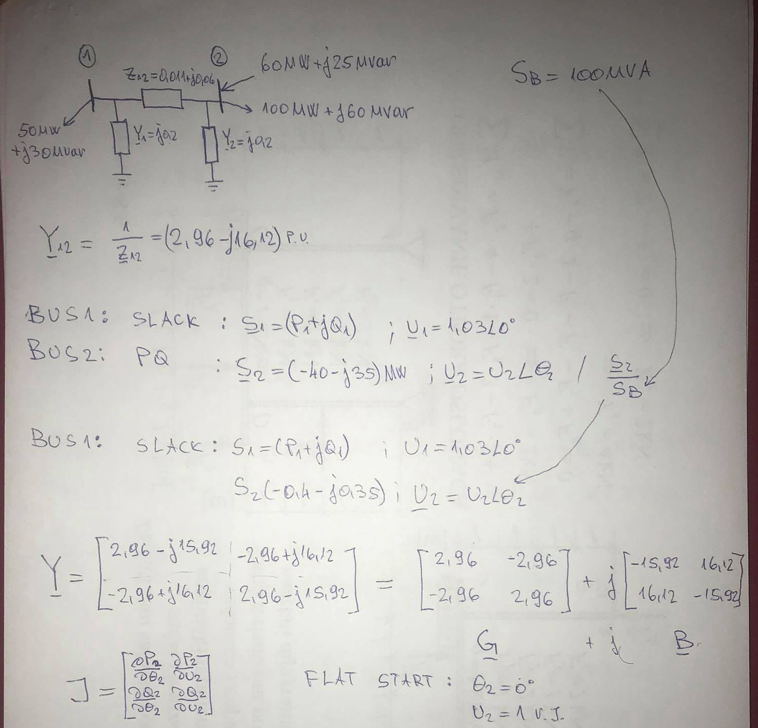 ① ②
Z12=0,011+j0,06
60MW+j25Mvar
SB = 100MVA
100MW+j60Mvar
50MW
+j30Mvar
Y1=j0,2
Y2=j0,2
Y12 = 1/Z12 = (2,96-j16,12) P.U.
BUS1: SLACK : S1=(P1+jQ1) ; U1=1,03∠0°
BUS2: PQ : S2=(-40-j35)MW ; U2=U2∠θ2 / S2/SB
BUS1: SLACK: S1=(P1+jQ1) ; U1=1,03∠0°
S2(-0,4-j0,35) ; U2=U2∠θ2
Y = [2,96-j15,92 -2,96+j16,12 = [2,96 -2,96 + j [-15,92 16,12
-2,96+j16,12 2,96-j15,92] -2,96 2,96] 16,12 -15,92]
G + j B
J = [∂P2/∂θ2 ∂P2/∂U2
∂Q2/∂θ2 ∂Q2/∂U2]
FLAT START: θ2=0°
U2=1 V.J.